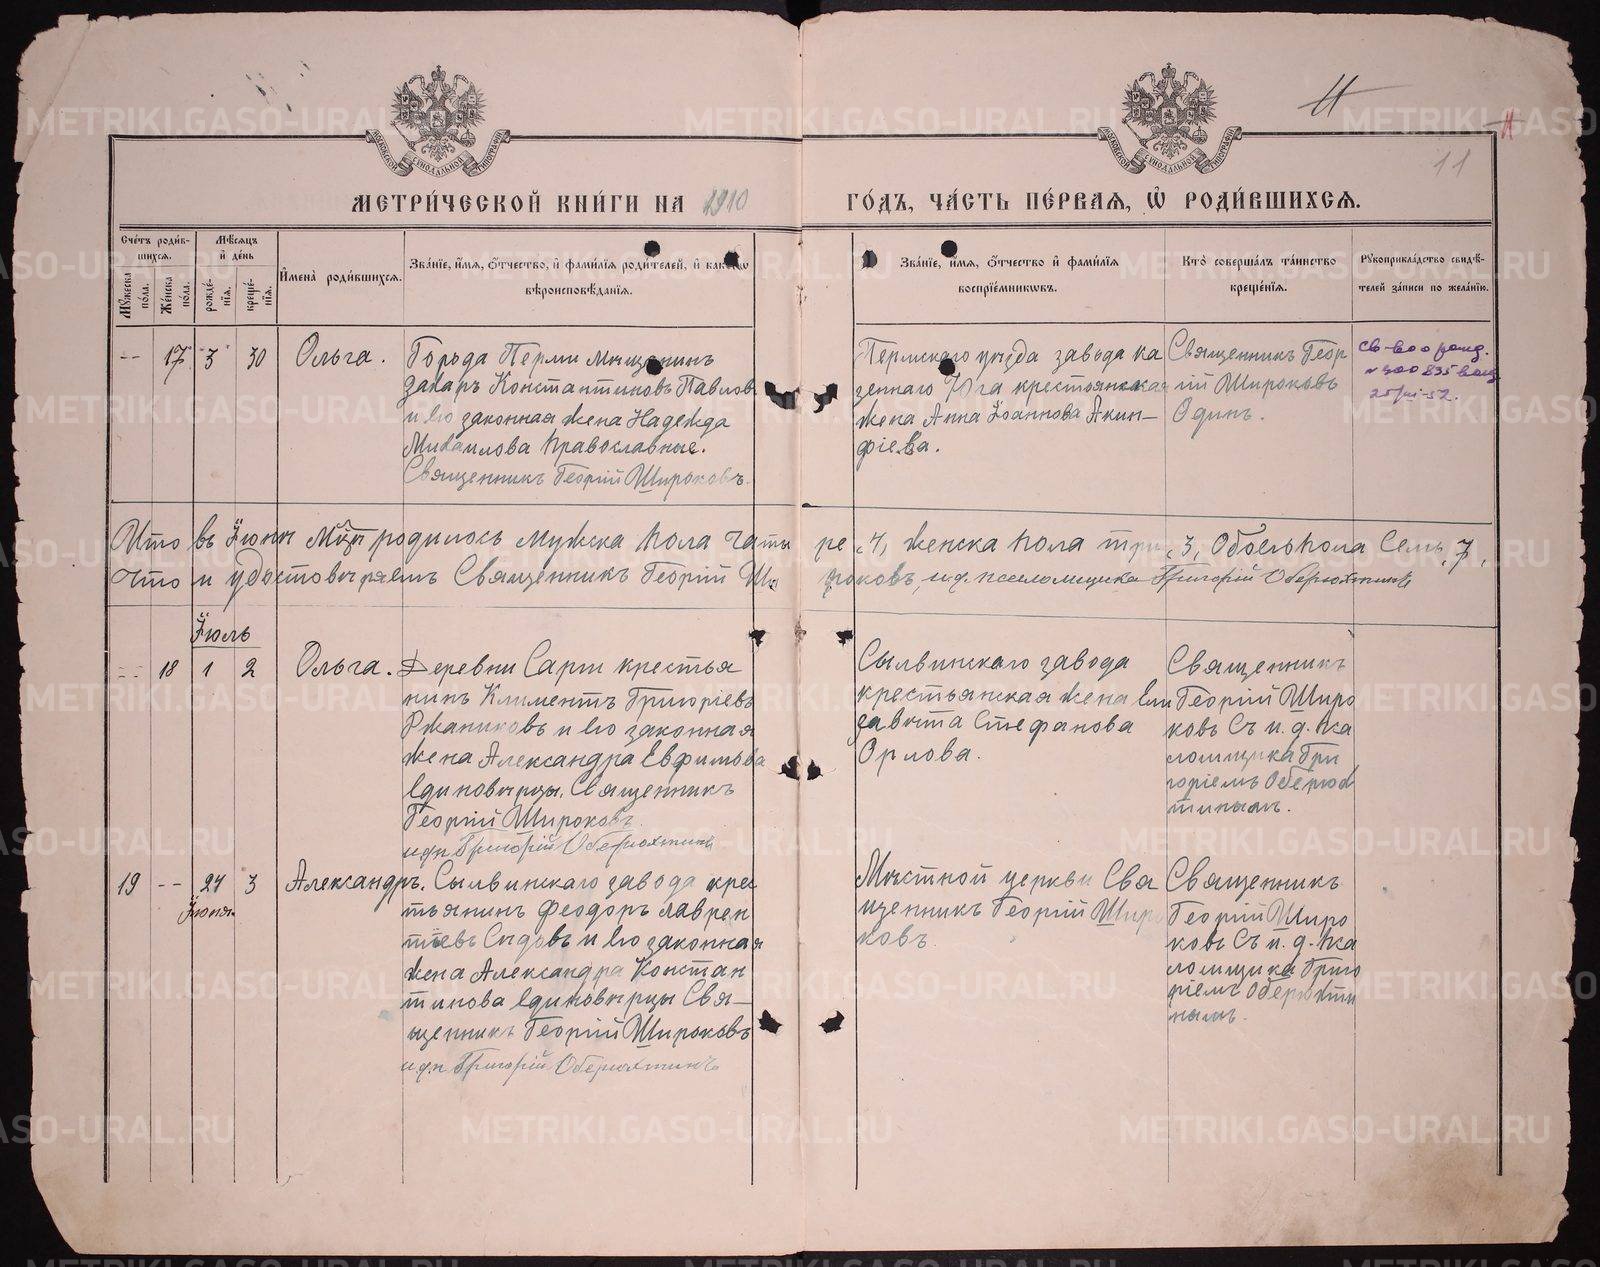 МЕТРИ́ЧЕСКОЙ КНИ́ГИ НА 1910 ГО́ДЪ, ЧА́СТЬ ПЕ́РВАЯ, Ѡ҆ РОДИ́ВШИХСЯ.
11
11
Сче́тъ роди́вшихся.
Мꙋ́жеска по́ла.
Же́нска по́ла.
Мѣ́сяцъ и҆ де́нь
рожде́нїя.
креще́нїя.
И҆мена̀ роди́вшихся.
Зва́нїе, и҆́мя, ѻ҆́тчество, и҆ фами́лїя роди́телей, и҆ како́гѡ
вѣроисповѣ́данїя.
Зва́нїе, и҆́мя, ѻ҆́тчество и҆ фами́лїя
воспрїе́мникѡвъ.
Кто̀ соверша́лъ та́инство
креще́нїя.
Рꙋкоприкла́дство свидѣ́-
телей за́писи по жела́нїю.
-- 17 3 30 Ольга.
Города Перми мѣщанинъ
Захаръ Константиновъ Павловъ
и его законная жена Надежда
Михаилова Православные.
Священникъ Георгій Широковъ.
Пермскаго уѣзда завода ка
зеннаго Юга крестьянская
жена Анна Іоаннова Акин-
фіева.
Священникъ Геор
гій Широковъ
Одинъ.
св-во о рожд.
25/VII-52.
Что въ Іюнѣ Мцѣ родилось мужска пола четы ре 4, женска пола три 3, Обоего пола Семь 7,
Что и удостовѣряемъ Священникъ Георгій Ши роковъ, и.д. псаломщика Григорій Оберюхтинъ
Іюль
-- 18 1 2 Ольга.
Деревни Сарги крестья
нинъ Климентъ Григоріевъ
Ржаниковъ и его законная
жена Александра Евфимьева
единовѣрцы. Священникъ
Георгій Широковъ
и.д.п. Григорій Оберюхтинъ
Сылвинскаго завода
крестьянская жена Ели
завета Стефанова
Орлова.
Священникъ
Георгій Широ
ковъ Съ и. д. пса
ломщика Гри
горіемъ Оберюх
тинымъ.
19 -- 24 Іюня. 3 Александръ.
Сылвинскаго завода крес
тьянинъ Феодоръ Лаврен
тіевъ Сѣдовъ и его законная
жена Александра Констан
тинова единовѣрцы Свя-
щенникъ Георгій Широковъ
и.д.п. Григорій Оберюхтинъ
Мѣстной церкви Свя
щенникъ Георгій Широ
ковъ.
Священникъ
Георгій Широ
ковъ Съ и. д. пса
ломщика Григо
ріемъ Оберюхти
нымъ.
METRIKI.GASO-URAL.RU